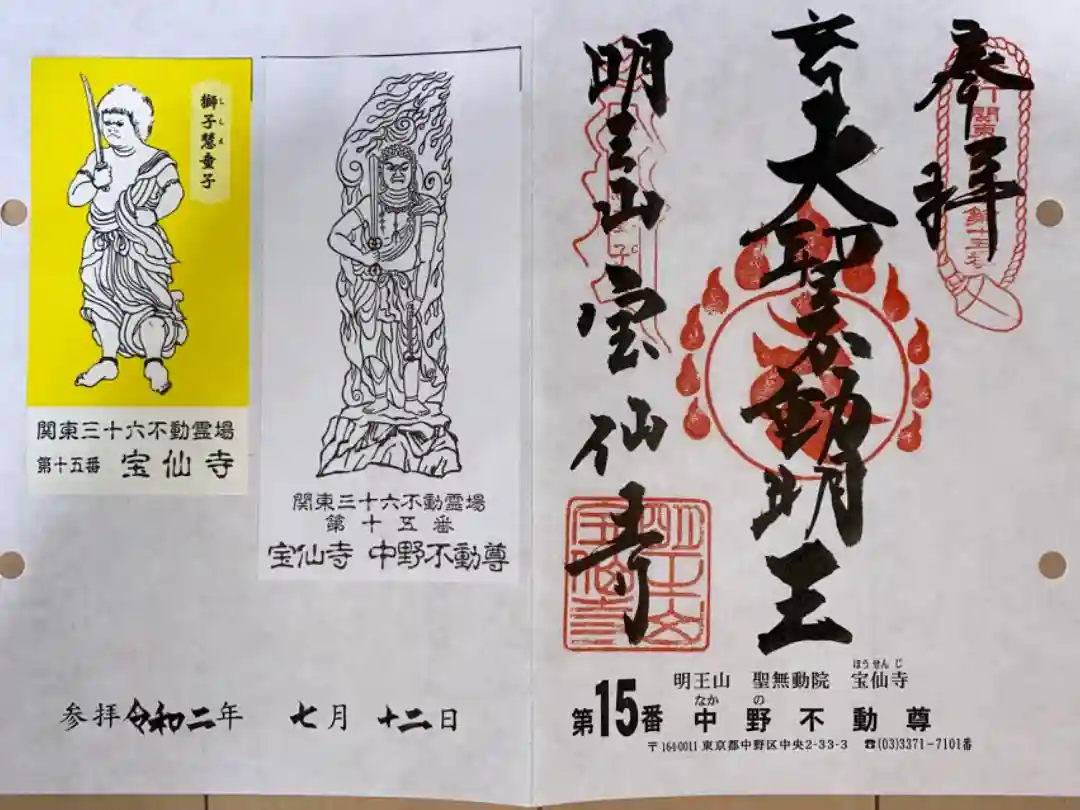 奉拝
大聖不動明王
明王山
宝仙寺
明王山 聖無動院 宝仙寺
ほうせんじ
第15番 中野不動尊
なか の
〒164-0011 東京都中野区中央2-33-3 ☎(03)3371-7101番
獅子慧童子
ししえ
関東三十六不動霊場
第十五番 宝仙寺
関東三十六不動霊場
第十五番
宝仙寺 中野不動尊
参拝令和二年 七月 十二日